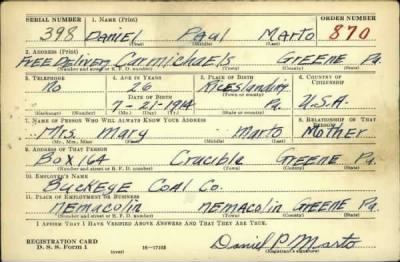 SERIAL NUMBER 1. NAME (Print) ORDER NUMBER
398 Daniel Paul Marto 870
(First) (Middle) (Last)
2. ADDRESS (Print)
Free Delivery Carmichaels Greene Pa.
(Number and street or R. F. D. number) (Town) (County) (State)
3. TELEPHONE 4. AGE IN YEARS 5. PLACE OF BIRTH 6. COUNTRY OF CITIZENSHIP
No 26 Riceslanding
DATE OF BIRTH (Town or county)
7-21-1914 Pa. U.S.A.
(Exchange) (Number) (Mo.) (Day) (Yr.) (State or country)
7. NAME OF PERSON WHO WILL ALWAYS KNOW YOUR ADDRESS 8. RELATIONSHIP OF THAT PERSON
Mrs. Mary Marto Mother
(Mr., Mrs., Miss) (First) (Middle) (Last)
9. ADDRESS OF THAT PERSON
Box 164 Crucible Greene Pa.
(Number and street or R. F. D. number) (Town) (County) (State)
10. EMPLOYER'S NAME
Buckeye Coal Co.
11. PLACE OF EMPLOYMENT OR BUSINESS
Nemacolin Nemacolin Greene Pa.
(Number and street or R. F. D. number) (Town) (County) (State)
I AFFIRM THAT I HAVE VERIFIED ABOVE ANSWERS AND THAT THEY ARE TRUE.
REGISTRATION CARD
D. S. S. Form 1 (over) 16-17105 Daniel P. Marto
(Registrant's signature)